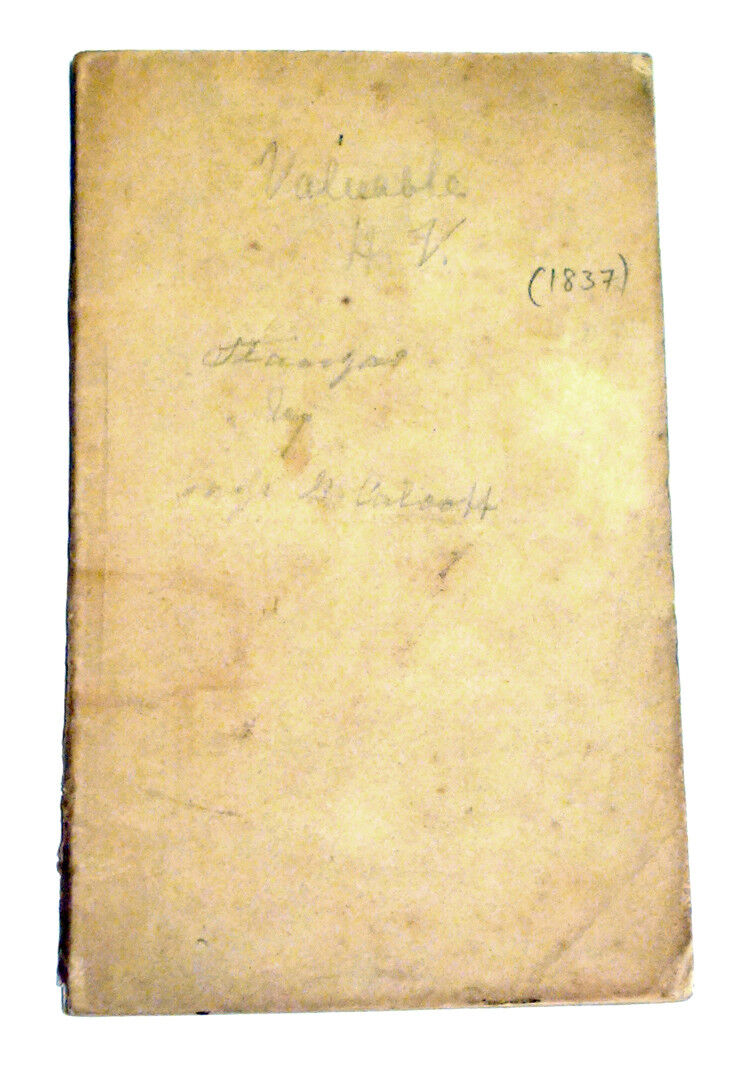 Valuable
H. V.
(1837)
Stanzas
by
B. Calcott